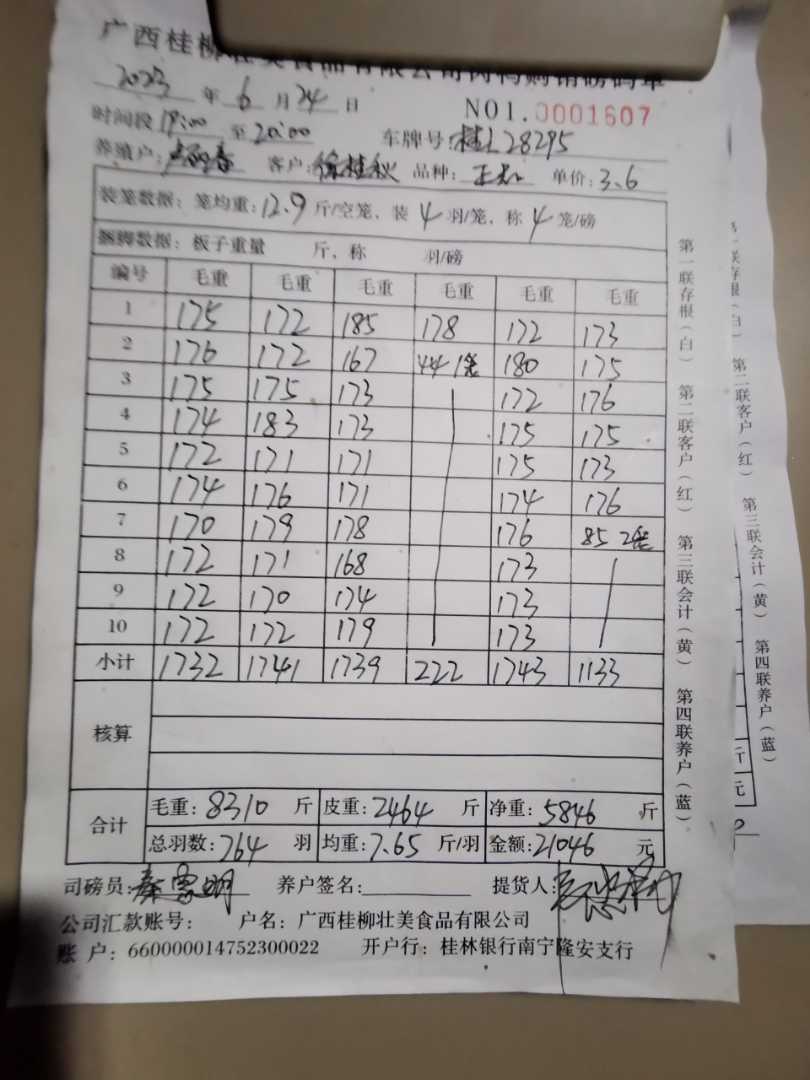 广西桂柳壮美食品有限公司肉鸭购销磅码单
2023 年 6 月 24 日 NO1.0001607
时间段 19:00 至 20:00 车牌号:桂L28295
养殖户: 客户:徐桂秋 品种: 单价:3.6
装笼数据:笼均重:12.9 斤/空笼、装 4 羽/笼,称 4 笼/磅
捆脚数据:板子重量 斤,称 羽/磅
编号 毛重 毛重 毛重 毛重 毛重 毛重
1 175 172 185 178 172 173
2 176 172 167 44 1笼 180 175
3 175 175 173 172 176
4 174 183 173 175 175
5 172 171 171 175 173
6 174 176 171 174 176
7 170 179 178 176 85 2笼
8 172 171 168 173
9 172 170 174 173
10 172 172 179 173
小计 1732 1741 1739 222 1743 1133
核算
合计 毛重:8310 斤 皮重:2464 斤 净重:5846 斤
总羽数:764 羽 均重:7.65 斤/羽 金额:21046 元
司磅员: 养户签名: 提货人:
公司汇款账号: 户名:广西桂柳壮美食品有限公司
账 户:660000014752300022 开户行:桂林银行南宁隆安支行
第一联存根(白) 第二联客户(红) 第三联会计(黄) 第四联养户(蓝)
第二联客户(红) 第三联会计(黄) 第四联养户(蓝)
斤
元